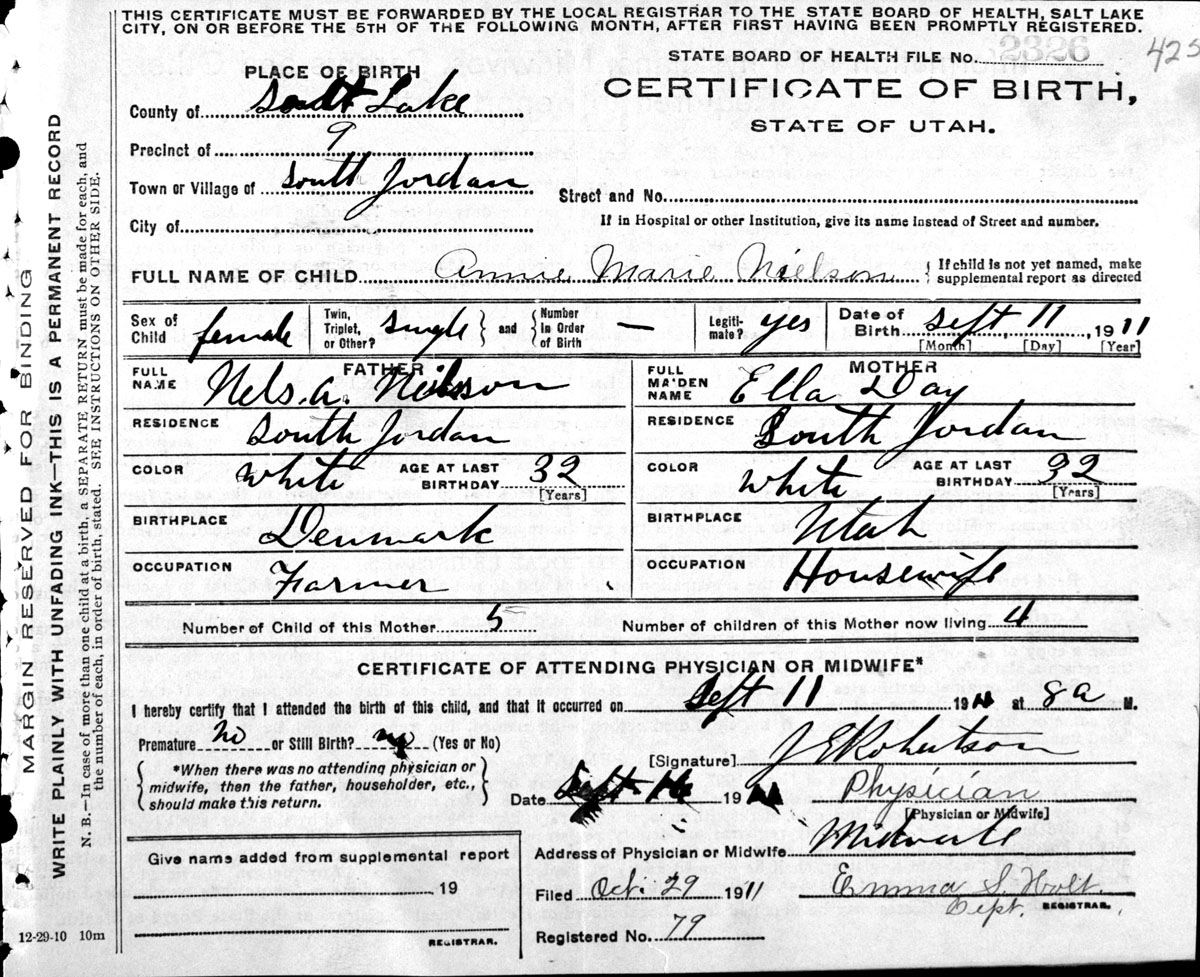 THIS CERTIFICATE MUST BE FORWARDED BY THE LOCAL REGISTRAR TO THE STATE BOARD OF HEALTH, SALT LAKE
CITY, ON OR BEFORE THE 5TH OF THE FOLLOWING MONTH, AFTER FIRST HAVING BEEN PROMPTLY REGISTERED.
STATE BOARD OF HEALTH FILE No. 2326
425
PLACE OF BIRTH
CERTIFICATE OF BIRTH,
STATE OF UTAH.
County of Salt Lake
Precinct of 9
Town or Village of South Jordan
Street and No.
City of
If in Hospital or other Institution, give its name instead of Street and number.
FULL NAME OF CHILD Annie Marie Nielson { If child is not yet named, make
supplemental report as directed
Sex of Child female
Twin, Triplet, or Other? single } and { Number in Order of Birth —
Legitimate? yes
Date of Birth Sept 11, 1911
[Month] [Day] [Year]
FATHER
FULL NAME Nels. A. Neilson
MOTHER
FULL MAIDEN NAME Ella Day
RESIDENCE South Jordan
RESIDENCE South Jordan
COLOR white AGE AT LAST BIRTHDAY 32 [Years]
COLOR white AGE AT LAST BIRTHDAY 32 [Years]
BIRTHPLACE Denmark
BIRTHPLACE Utah
OCCUPATION Farmer
OCCUPATION Housewife
Number of Child of this Mother 5
Number of children of this Mother now living 4
CERTIFICATE OF ATTENDING PHYSICIAN OR MIDWIFE*
I hereby certify that I attended the birth of this child, and that it occurred on Sept 11 1911 at 8a M.
Premature No or Still Birth? no (Yes or No)
{ *When there was no attending physician or
midwife, then the father, householder, etc.,
should make this return. }
[Signature] J E Robertson
Date Sept 16 1911
Physician
[Physician or Midwife]
Address of Physician or Midwife Midvale
Give name added from supplemental report
19
REGISTRAR.
Filed Oct. 29 1911 Emma S. Holt.
Dept. REGISTRAR.
Registered No. 79
12-29-10 10m
MARGIN RESERVED FOR BINDING
WRITE PLAINLY WITH UNFADING INK—THIS IS A PERMANENT RECORD
N. B.—In case of more than one child at a birth, a SEPARATE RETURN must be made for each, and
the number of each, in order of birth, stated. SEE INSTRUCTIONS ON OTHER SIDE.